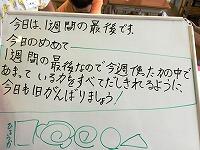 今日は、1週間の最後です。
今日のめめて
1週間の最後なので今週焦たかの中で
あまっているかをすべてだしきれるように、
今日も旧がんばりましょう！